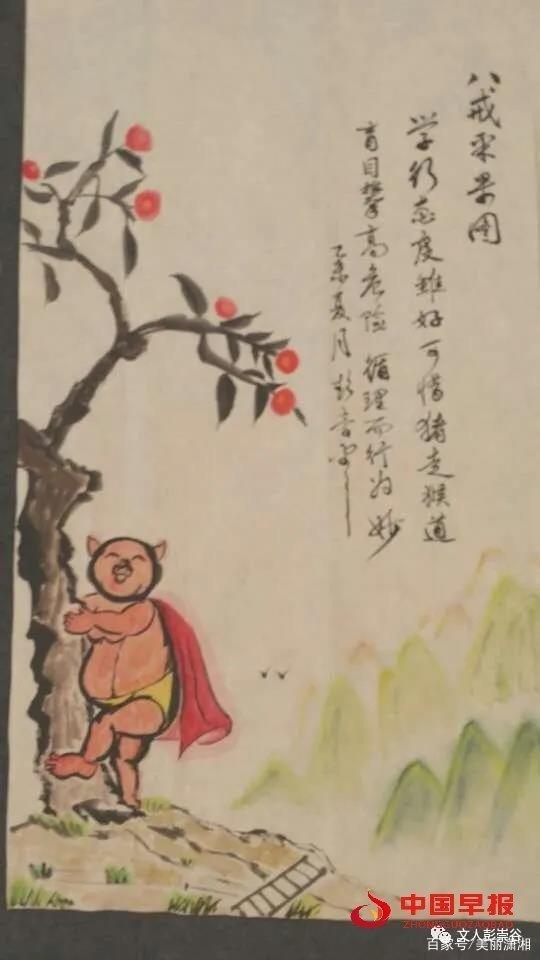 八戒采果图
学行态度雖好可惜猪走猴道
盲目攀高危险 循理而行为妙
乙未夏月彭崇谷
中国早报
ZHONGGUOZAOBAO
文人彭崇谷
百家号/美丽潇湘